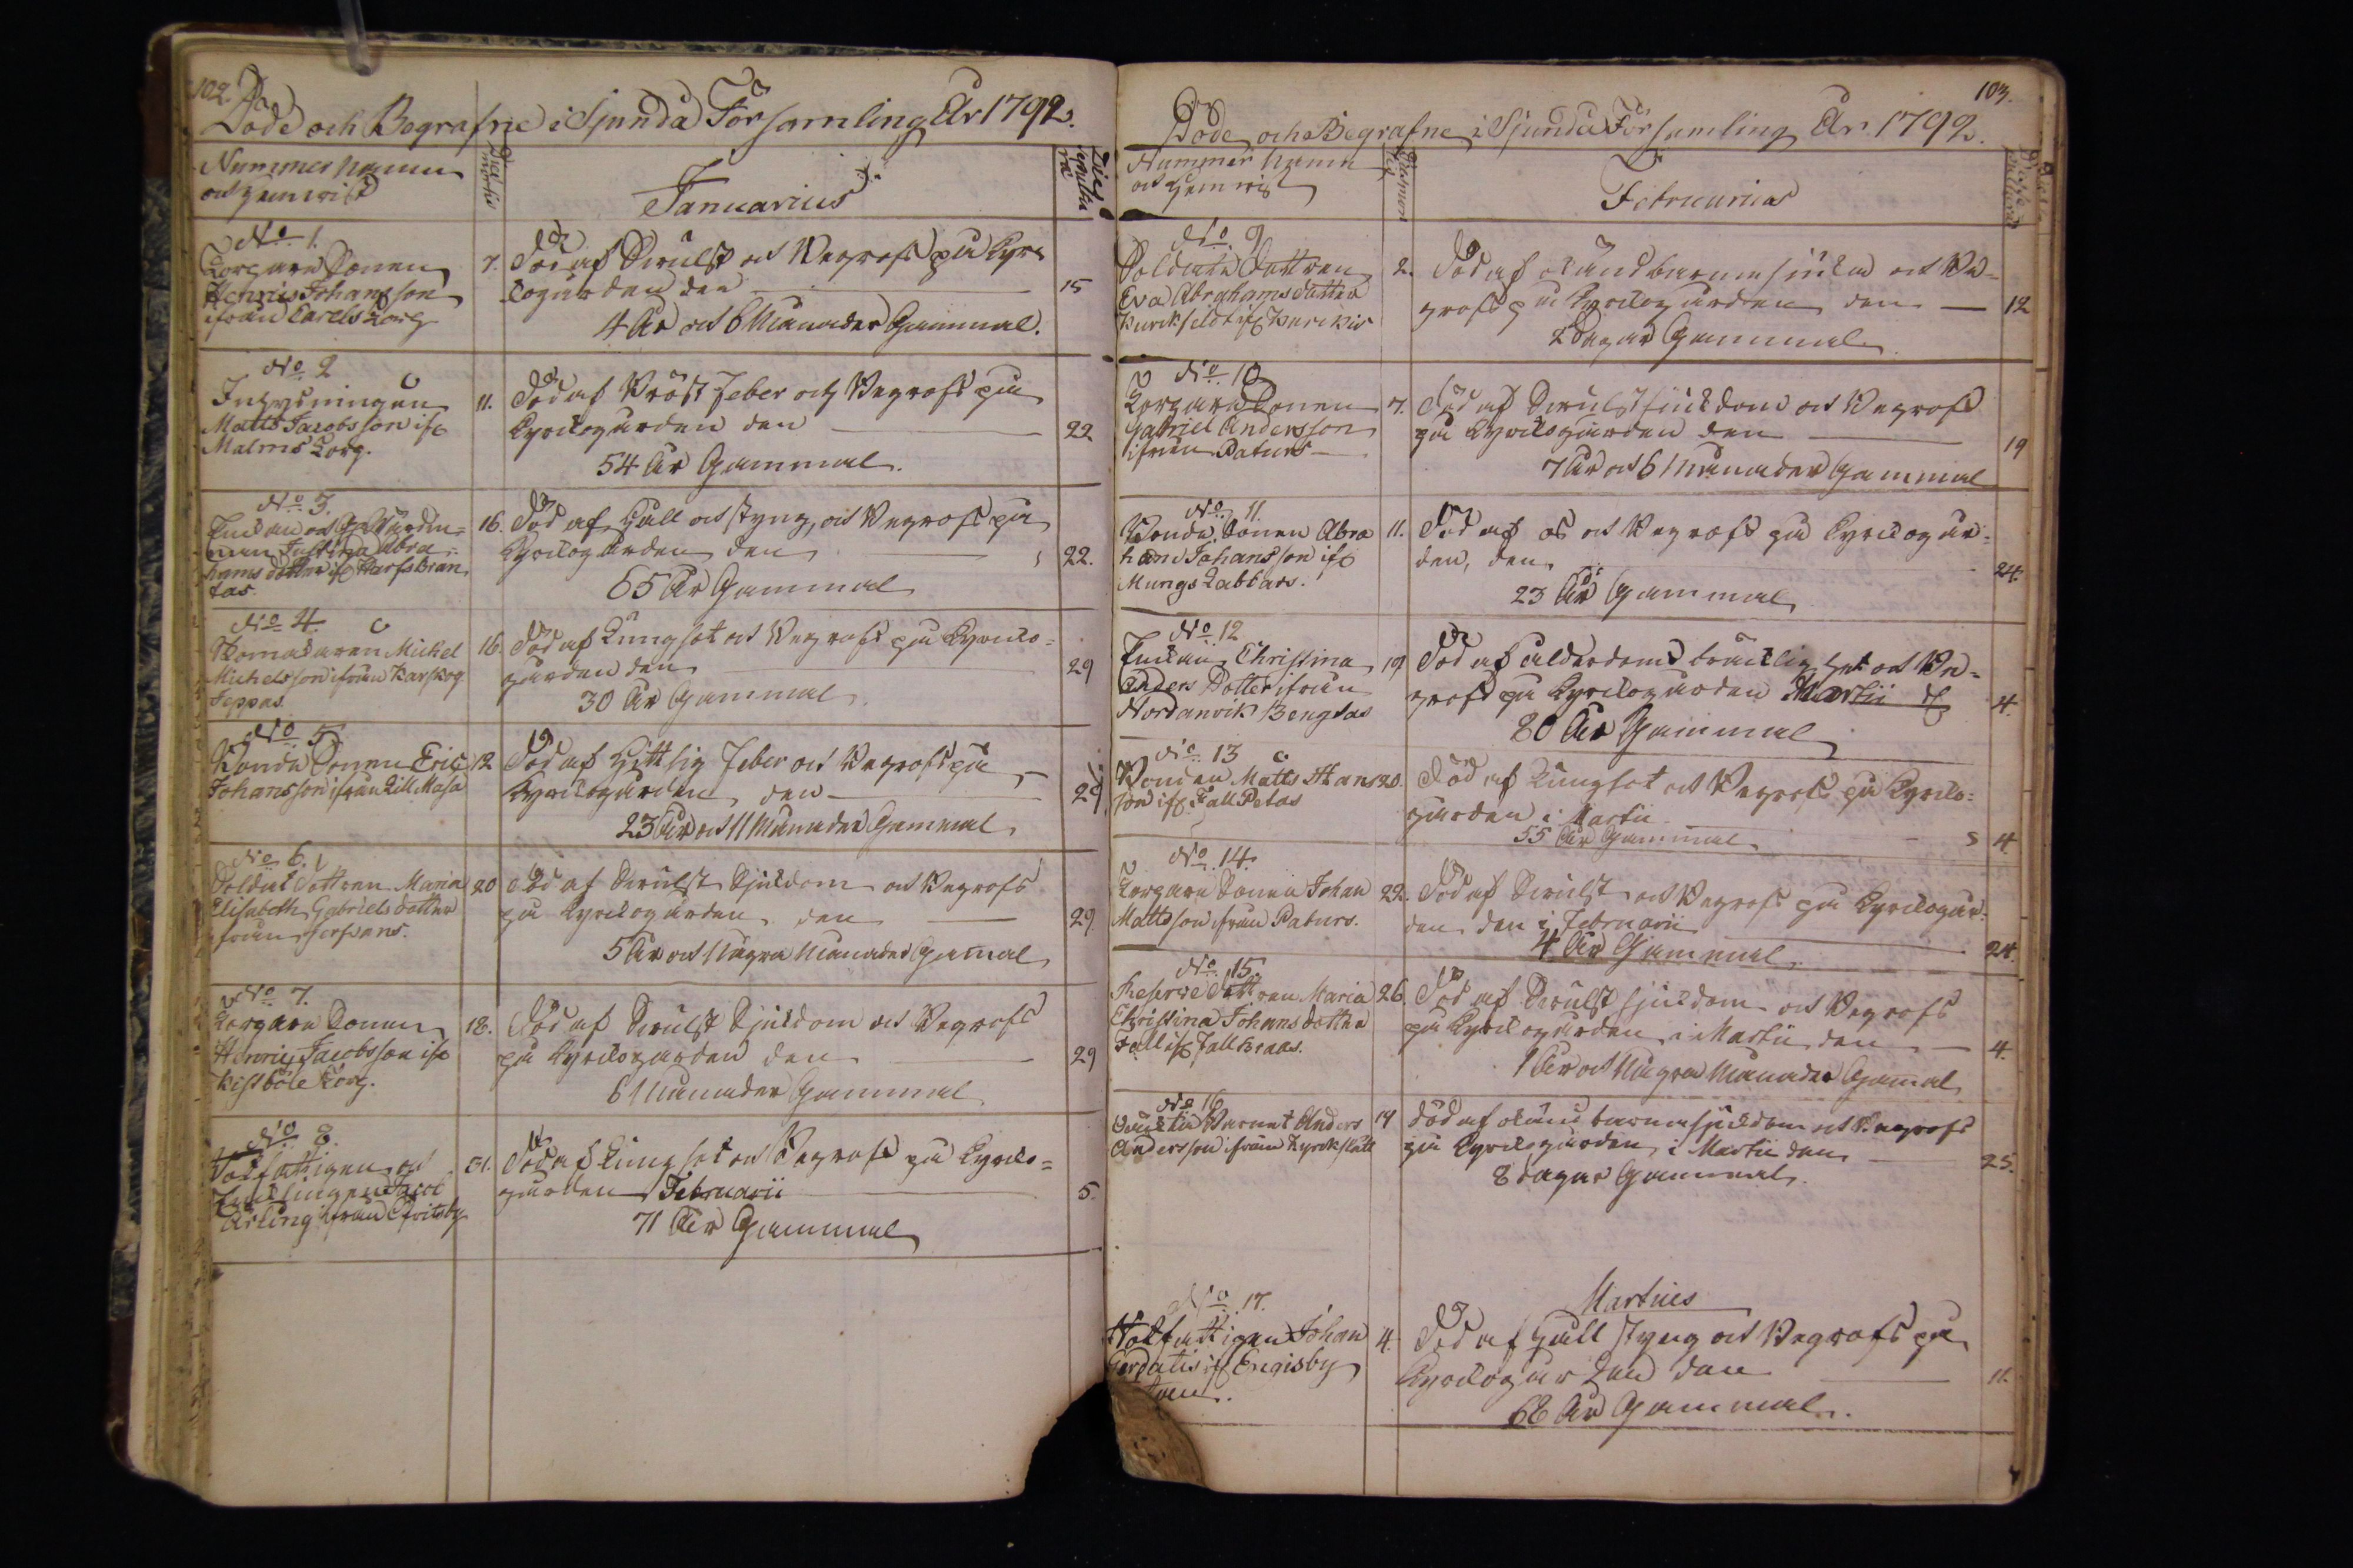 102
Döde och Begrafne i Sjundå Församling År 1792.
Nummer Namn
och hemvist
Dies mortis
Januarius
Dies sepultu
ræ
No 1.
Torpare Sonen
Henric Johansson
ifrån Carels Torp
7.
Död af Swulst och Begrofs på Kyr-
kogården den
15
4 År och 6 Månader Gammal.
No 2
Inhysningen
Matts Jacobsson ifr
Malms Torp.
11.
Död af Bröst feber och Begrofs på
Kyrkogården den
22
54 År Gammal.
No 3.
Enkan och
Justina Abra-
hams dotter ifr
tas
16.
Död af Håll och styng, och Begrofs på
Kyrkogården den
22.
65 År Gammal
No 4.
Skomakaren Michel
Michelsson ifrån Karskog
Jeppas.
16.
Död af Lungsot och Begrofs på Kyrko-
gården den
29
30 År Gammal
No 5
Bonde Sonen Eric
Johansson ifrån Lill Masa
12
Död af Hittsig feber och Begrofs på
Kyrkogården, den
29
23 År och 11 Månader Gammal
No 6.
Soldat Dottren Maria
Elisabeth Gabriels dotter
ifrån
20
Död af Swulst Sjukdom och Begrofs
på Kyrkogården den
29
5 År och Några Månader Gamal
No 7.
Torpare Sonen
Henric Jacobsson ifr
Kistböle Torp.
18.
Död af Swulst Sjukdom och Begrofs
på Kyrkogården den
29
6 Månader Gammal
No 8.
och
Jacob
ifrån
31.
Död af Lungsot och Begrofs på Kyrko-
gården Februarii
5.
71 År Gammal
103.
Döde och Begrafne i Sjundå Församling År. 1792.
Nummer Namn
och Hemvist
Februarius
No 9
Soldate Dottren
Eva Abrahams dotter
ifr Kurckis
2.
Död af okänd barnasjukdom och Be-
grofs på Kyrkogården den
12
2 Dagar Gammal
No 10
Torpare Sonen
Gabriel Andersson
ifrån Paturs
7.
Död af Swulst sjukdom och Begrofs
på Kyrkogården den
19
7 År och 6 Månader Gammal
No 11
Bonde Sonen Abra
ham Johansson ifr
Mungs Labbars.
11.
Död af os och Begrofs på Kyrkogår-
den, den
24.
23 År Gammal
No 12
Enkan Christina
Anders Dotter ifrån
Nordanvik Bengtas
19
Död af ålderdoms bräcklighet och Be-
grofs på Kyrkogården Martii
4.
80 År Gammal
No 13
Bonden Matts Hans
son ifr. Fall Petas
20.
Död af Lungsot och Begrofs på Kyrko-
gården i Martii
4.
55 År Gammal
No 14.
Torpare Sonen Johan
Mattsson ifrån Paturs.
22.
Död af Swulst och Begrofs på Kyrkogår-
den den i Februarii
24.
4 År Gammal
No 15.
Reserve Dottren Maria
Christina Johans dotter
Fall ifr Fall
26.
Död af Swulst sjukdom och Begrofs
på Kyrkogården i Martii den
4.
1 År och Några Månader Gamal
No 16
Oäckta Barnet Anders
Andersson ifrån Kyrckslätt
14
död af okänd barnasjukdom och Begrofs
på Kyrkogården i Martii den
25.
8 dagar Gammal
Martius
No 17.
Rotfattigen Johan
ifr Engisby
4.
Död af Håll styng och Begrofs på
Kyrkogården den
11.
68 År Gammal.